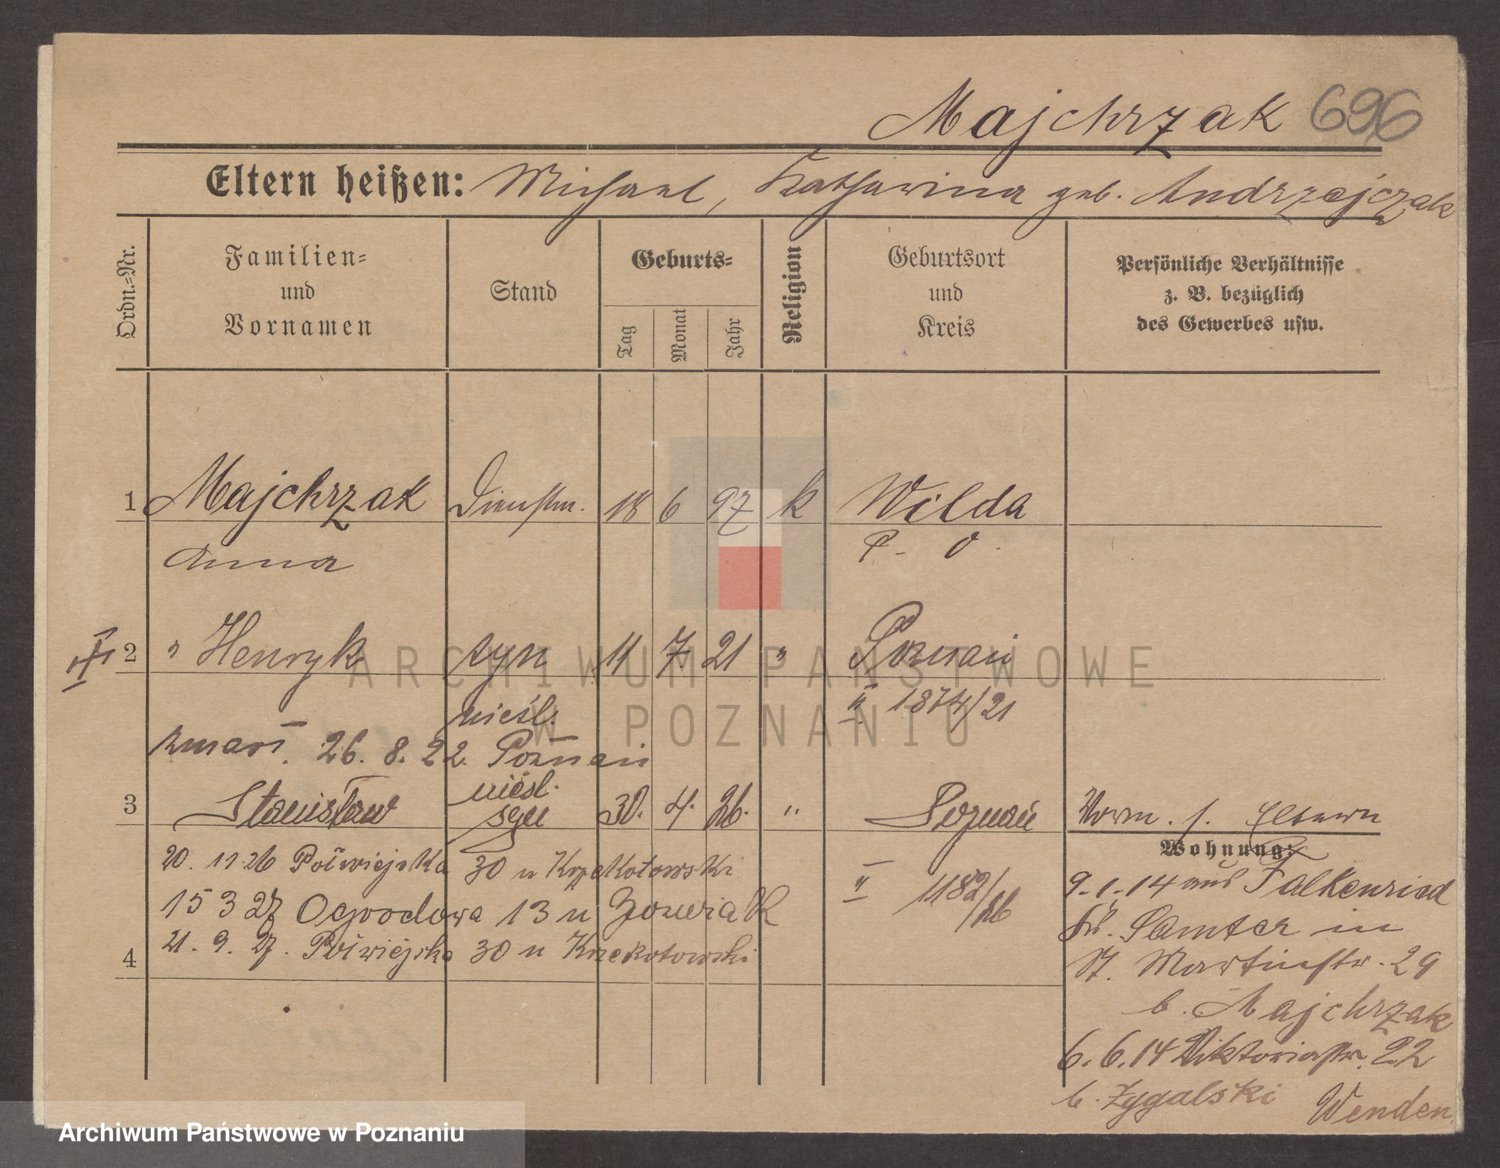 Majchrzak 696
Eltern heißen: Michael, Katharina geb. Andrzejczak
Ordn.-Nr.
Familien-
und
Vornamen
Stand
Geburts-
Tag
Monat
Jahr
Religion
Geburtsort
und
Kreis
Persönliche Verhältnisse
z. B. bezüglich
des Gewerbes usw.
1 Majchrzak Dienstm. 18 6 97 k Wilda
Anna P. O.
2 " Henryk syn 11 7. 21 " Poznań
nieśl. II 1874/21
zmarł. 26. 8. 22. Poznań
3 Stanisław nieśl. syn 30. 4. 26. " Poznań
II 1182/26
20. 11 26 Półwiejska 30 u Krzekotowski
15 3 27 Ogrodowa 13 u
21. 9. 27. Półwiejska 30 u Krzekotowski
4
Vorm. s. Eltern
Wohnung:
9.1.14 aus Falkenried
Kr. Samter in
St. Martinstr. 29
b. Majchrzak
6.6.14 Viktoriastr. 22
b. Zygalski
Wenden
ARCHIWUM PAŃSTWOWE
W POZNANIU
Archiwum Państwowe w Poznaniu